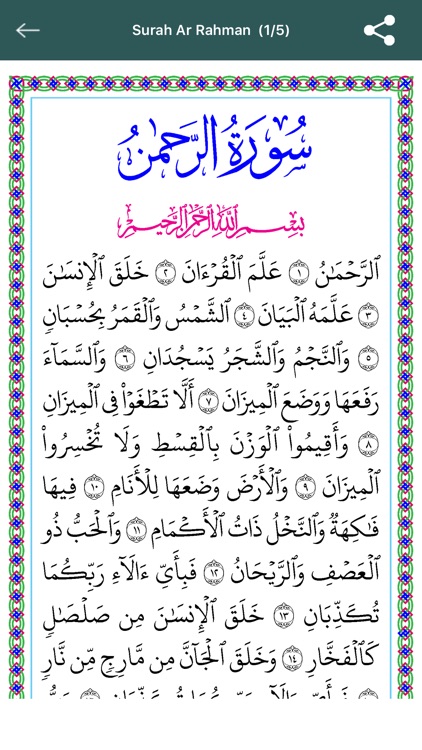 Surah Ar Rahman (1/5)
سُورَةُ الرَّحْمٰنُ
بِسْمِ ٱللَّهِ ٱلرَّحْمَٰنِ ٱلرَّحِيمِ
ٱلرَّحْمَٰنُ ١ عَلَّمَ ٱلْقُرْءَانَ ٢ خَلَقَ ٱلْإِنسَٰنَ
٣ عَلَّمَهُ ٱلْبَيَانَ ٤ ٱلشَّمْسُ وَٱلْقَمَرُ بِحُسْبَانٍ
٥ وَٱلنَّجْمُ وَٱلشَّجَرُ يَسْجُدَانِ ٦ وَٱلسَّمَآءَ
رَفَعَهَا وَوَضَعَ ٱلْمِيزَانَ ٧ أَلَّا تَطْغَوْا۟ فِى ٱلْمِيزَانِ
٨ وَأَقِيمُوا۟ ٱلْوَزْنَ بِٱلْقِسْطِ وَلَا تُخْسِرُوا۟
ٱلْمِيزَانَ ٩ وَٱلْأَرْضَ وَضَعَهَا لِلْأَنَامِ ١٠ فِيهَا
فَٰكِهَةٌ وَٱلنَّخْلُ ذَاتُ ٱلْأَكْمَامِ ١١ وَٱلْحَبُّ ذُو
ٱلْعَصْفِ وَٱلرَّيْحَانُ ١٢ فَبِأَىِّ ءَالَآءِ رَبِّكُمَا
تُكَذِّبَانِ ١٣ خَلَقَ ٱلْإِنسَٰنَ مِن صَلْصَٰلٍ
كَٱلْفَخَّارِ ١٤ وَخَلَقَ ٱلْجَآنَّ مِن مَّارِجٍ مِّن نَّارٍ